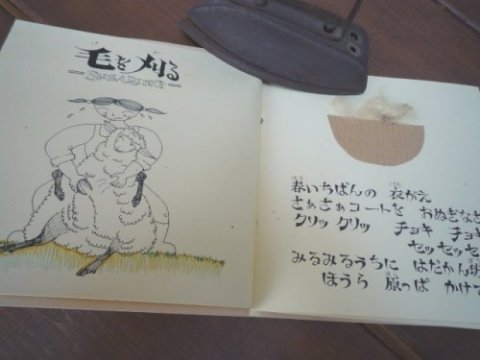 毛を刈る
SHEARING
春いちばんの 衣がえ
さぁさぁコートを おぬぎなさ
クリックリッ チョキ チョキ
セッセッセ
みるみるうちに はだかんぼ
ほうら 原っぱ かけて